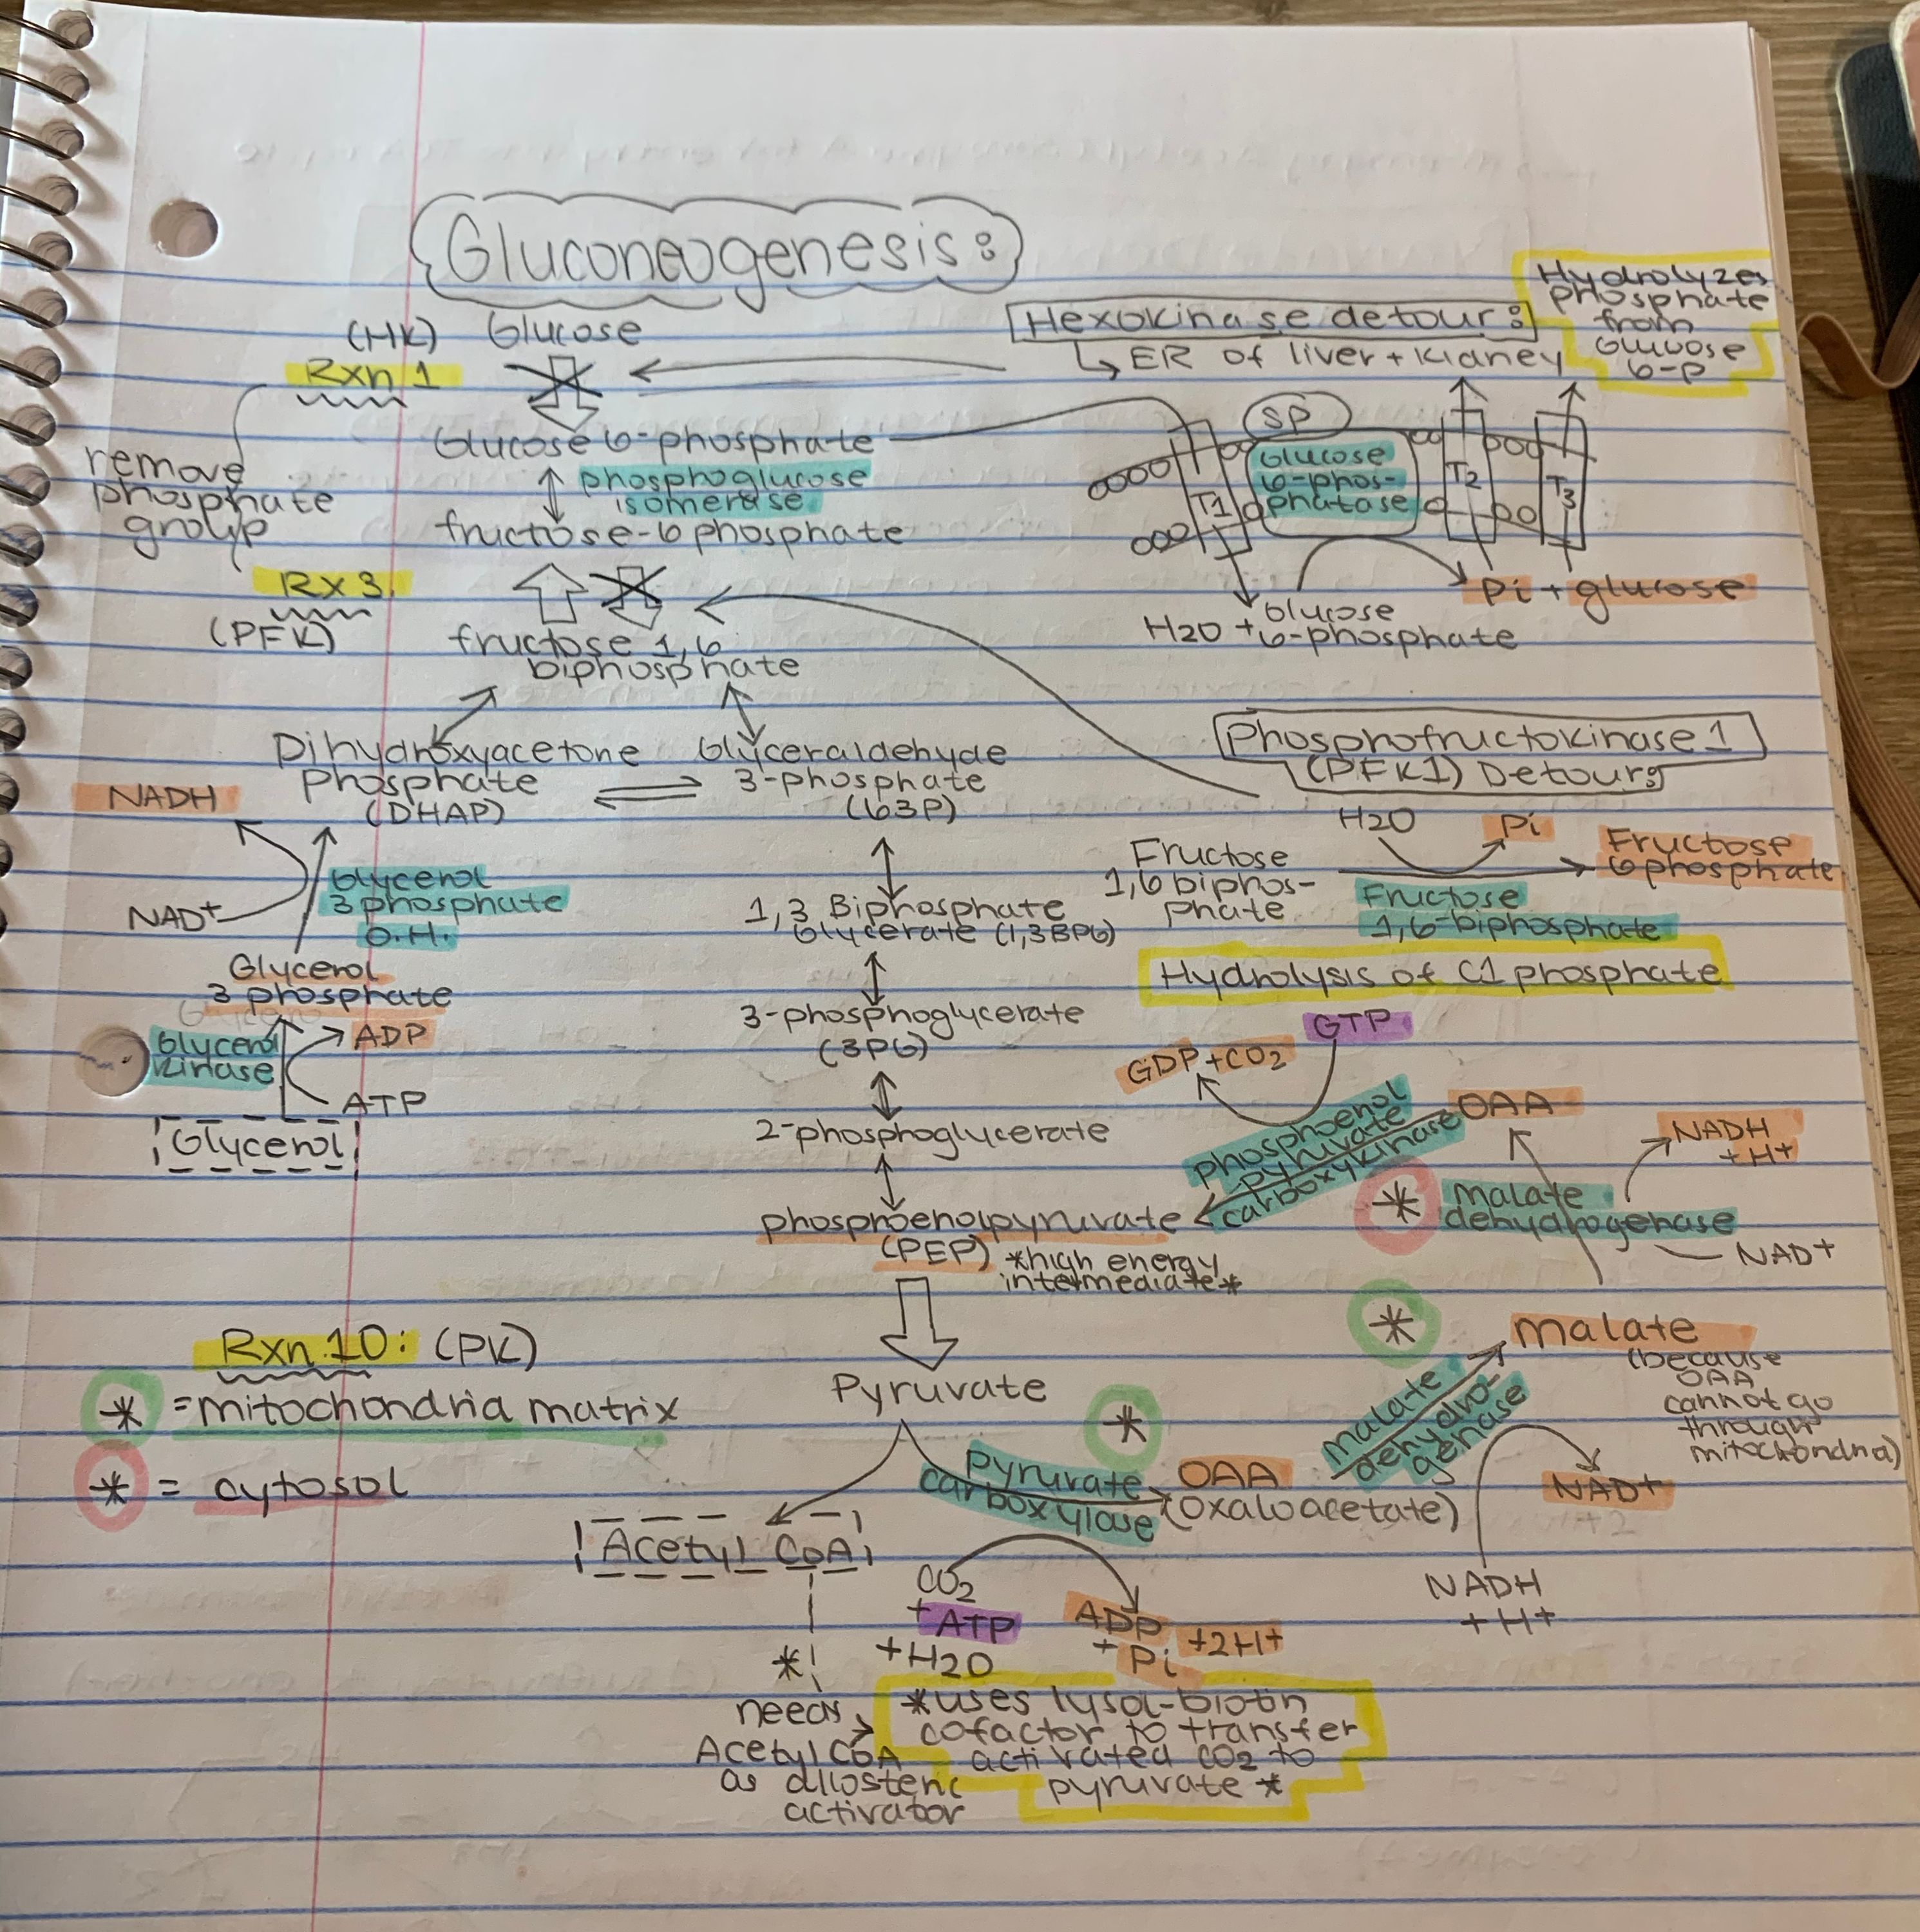 Gluconeogenesis:
(HK) Glucose
Rxn 1
Hexokinase detour:
↳ ER of liver + kidney
Hydrolyzes
phosphate
from
Glucose
6-P
remove
phosphate
group
Glucose 6-phosphate
phosphoglucose
isomerase
fructose-6 phosphate
SP
Glucose
6-phos-
phatase
T1
T2
T3
Pi + glucose
H2O + Glucose
6-phosphate
Rx 3
(PFK)
fructose 1,6
biphosphate
Dihydroxyacetone
Phosphate
(DHAP)
Glyceraldehyde
3-phosphate
(G3P)
Phosphofructokinase 1
(PFK1) Detour:
NADH
NAD+
Glycerol
3 phosphate
D.H.
Glycerol
3 phosphate
Glycerol
kinase
ADP
ATP
Glycerol
1,3 Biphosphate
Glycerate (1,3BPG)
H2O
Pi
Fructose
1,6 biphos-
phate
Fructose
6 phosphate
Fructose
1,6-biphosphate
Hydrolysis of C1 phosphate
3-phosphoglycerate
(3PG)
GTP
GDP + CO2
2-phosphoglycerate
phosphoenol
pyruvate
carboxykinase
OAA
NADH
+ H+
* malate
dehydrogenase
NAD+
phosphoenolpyruvate
(PEP) *high energy
intermediate*
Rxn 10: (PK)
* = mitochondria matrix
* = cytosol
Pyruvate
*
malate
(because
OAA
cannot go
through
mitochondria)
malate
dehydro-
genase
*
pyruvate
carboxylase
OAA
(oxaloacetate)
NAD+
NADH
+ H+
Acetyl CoA
CO2
+ ATP
+ H2O
ADP
+ Pi
+2H+
*
needs
Acetyl CoA
as allosteric
activator
*uses lysol-biotin
cofactor to transfer
activated CO2 to
pyruvate *